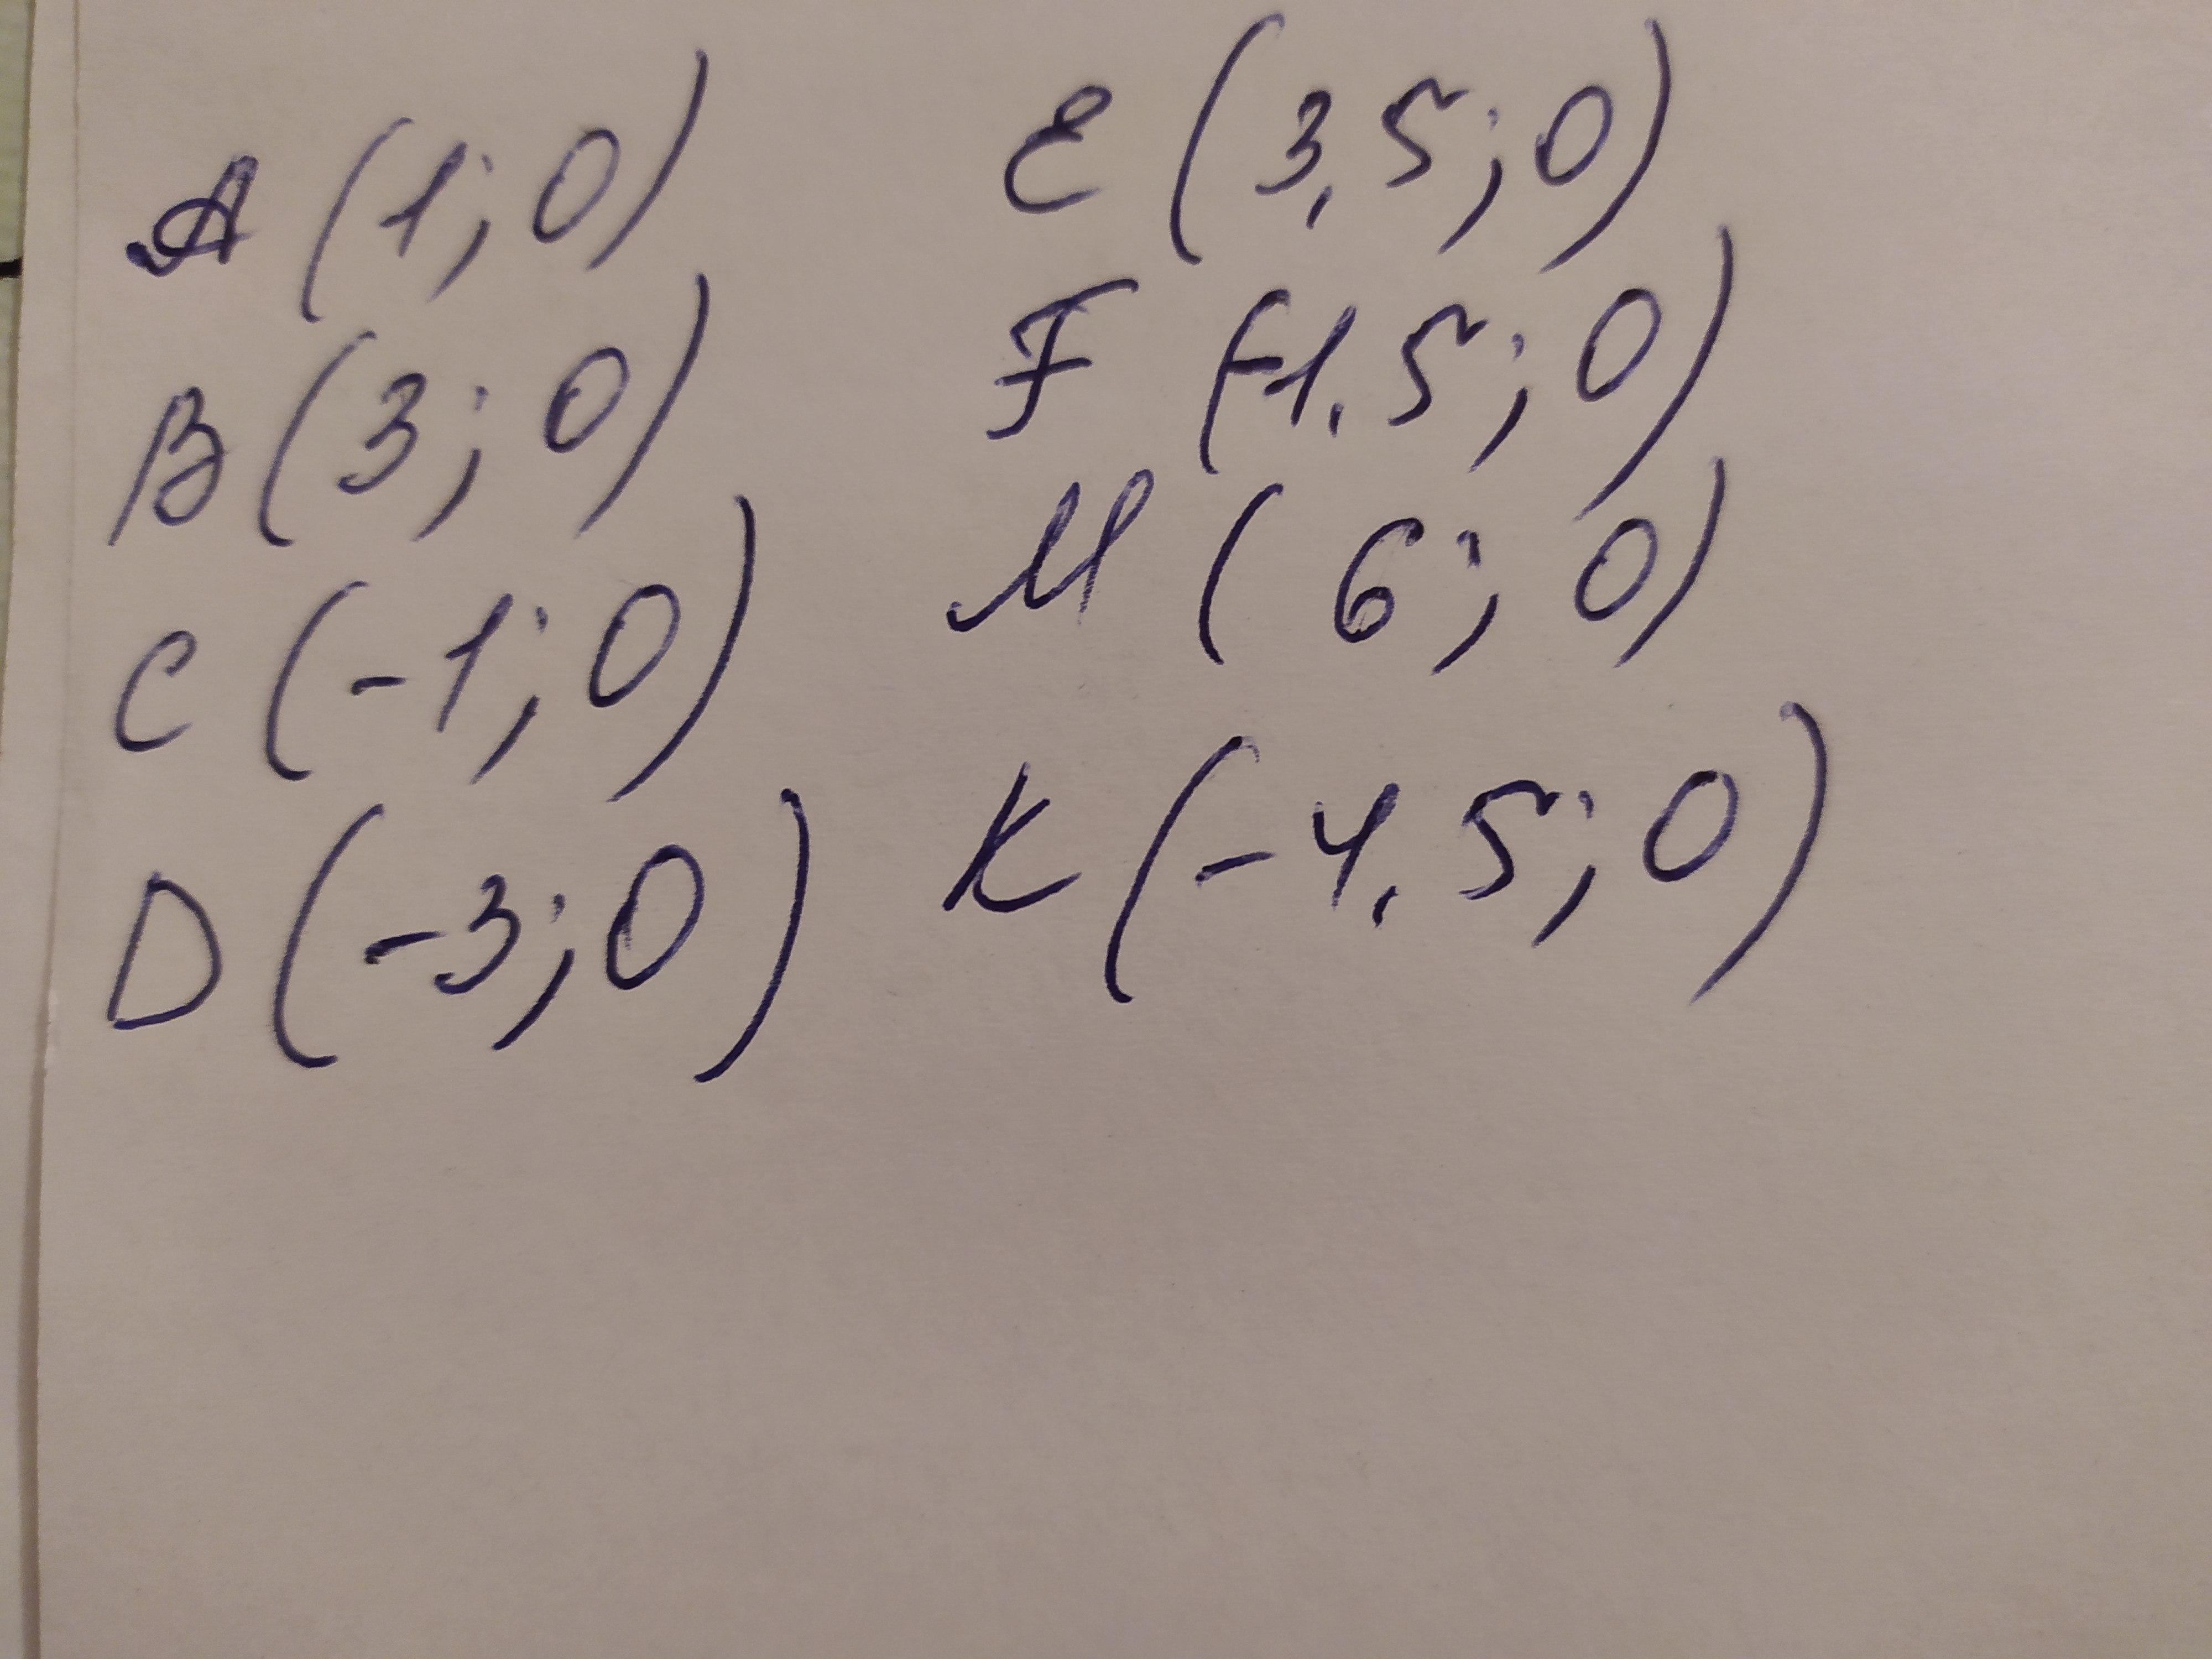 A (1; 0)
B (3; 0)
C (-1; 0)
D (-3; 0)
E (3,5; 0)
F (-1,5; 0)
M (6; 0)
K (-4,5; 0)